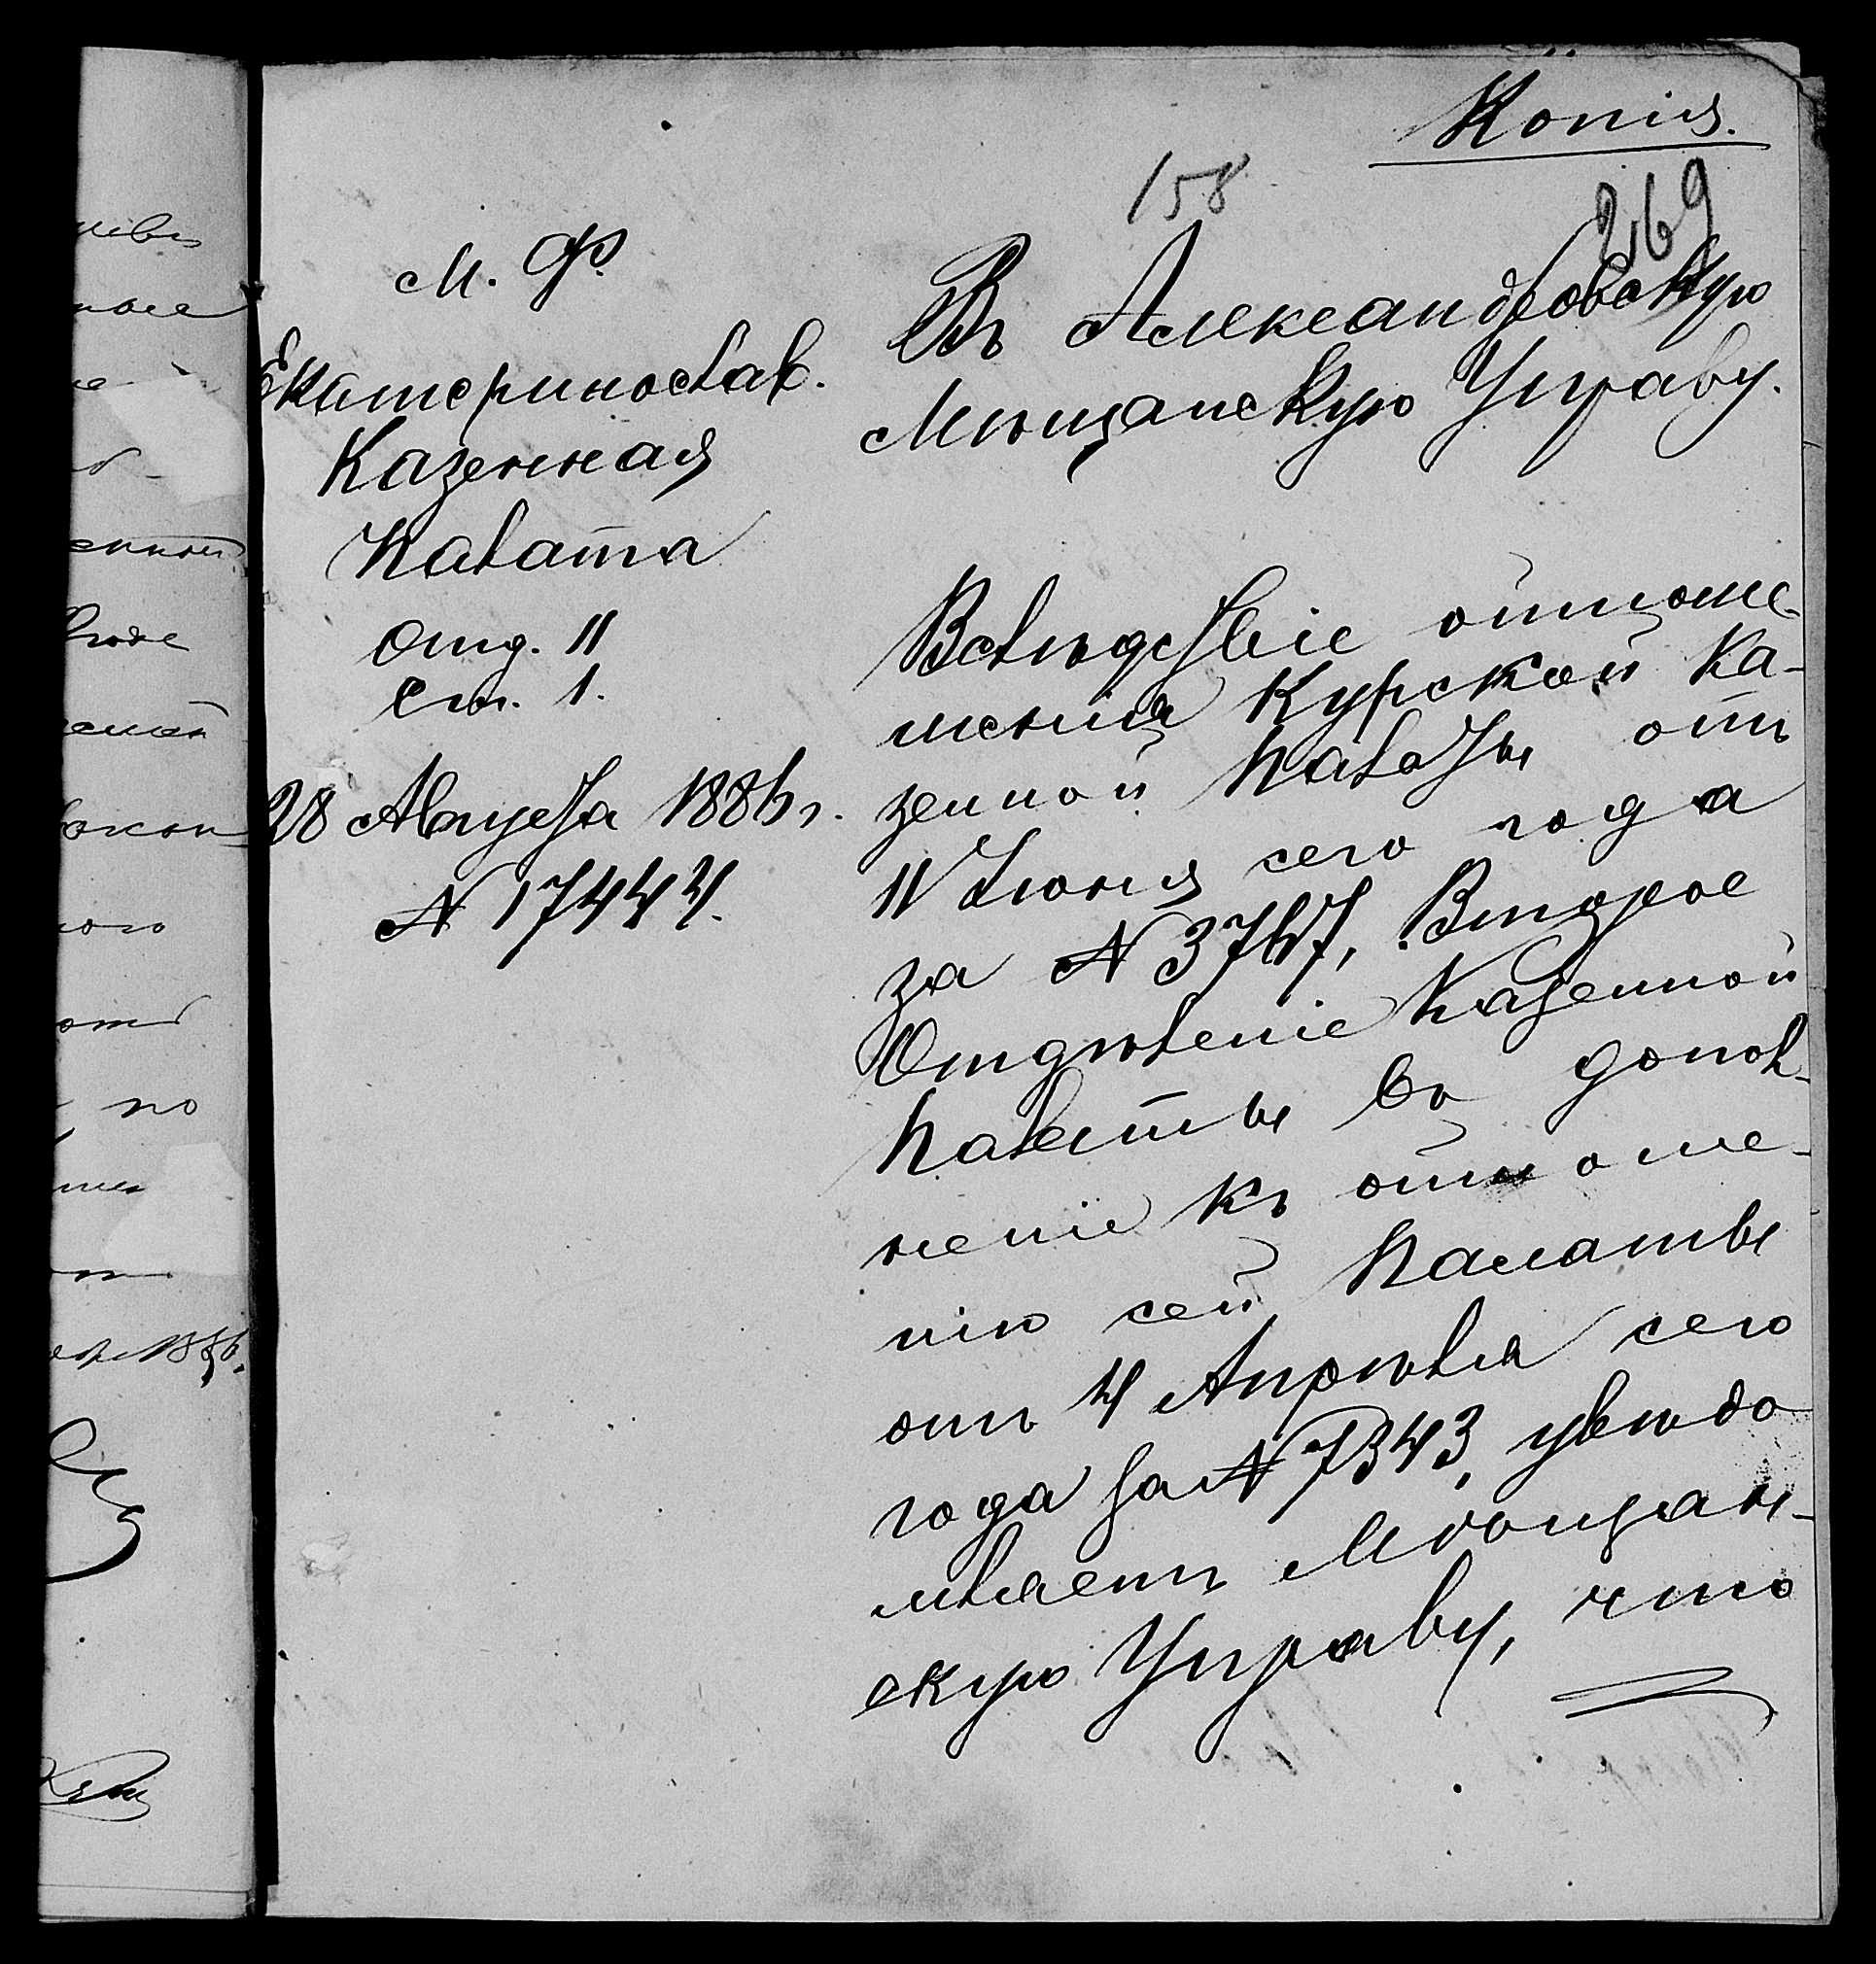 Копія.
158
269
М. Ф.
Екатеринослав.
Казенная
Палата
Отд. II
Ст. 1.
28 Августа 1886 г.
№ 17444.
Въ Александровскую
Мѣщанскую Управу.
Вслѣдствіе отноше-
шенія Курской Ка-
зенной Палаты отъ
11 Іюня сего года
за № 3767, Второе
Отдѣленіе Казенной
Палаты въ допол-
неніе къ отноше-
нію сей Палаты
отъ 4 Апрѣля сего
года за № 7343, увѣдо
мляетъ Мѣщан-
скую Управу, что
по
1886.